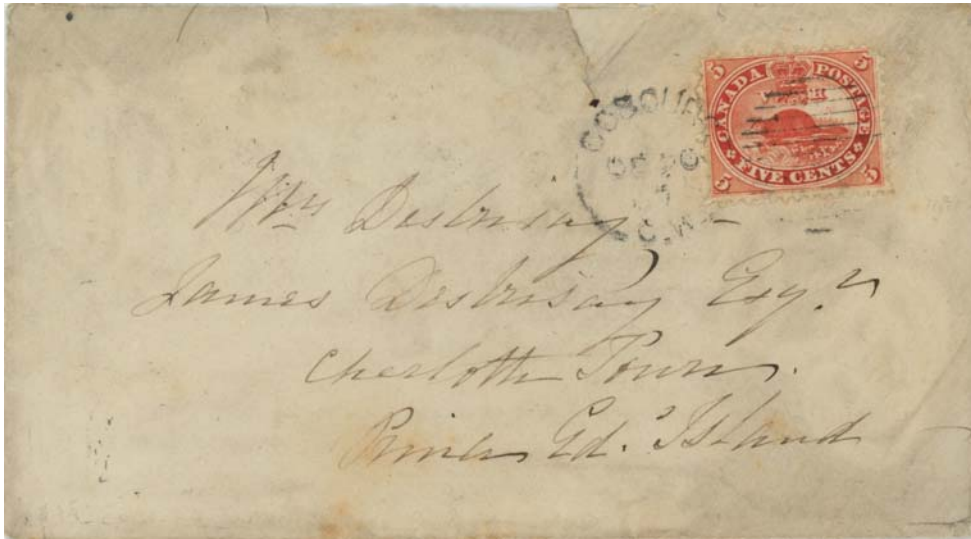 5 CANADA POSTAGE 5
5 FIVE CENTS 5
COBOURG
C.W.
Mrs Desbrisay
James Desbrisay Esqr
Charlotte Town.
Prince Ed. Island